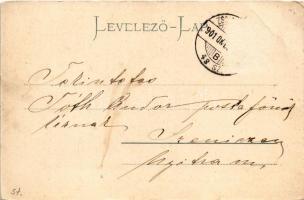 LEVELEZŐ-LAP
901 OKT
Tekintetes
Tóth Andor postafőnök
úrnak
Szenicz
Nyitra m.
57.